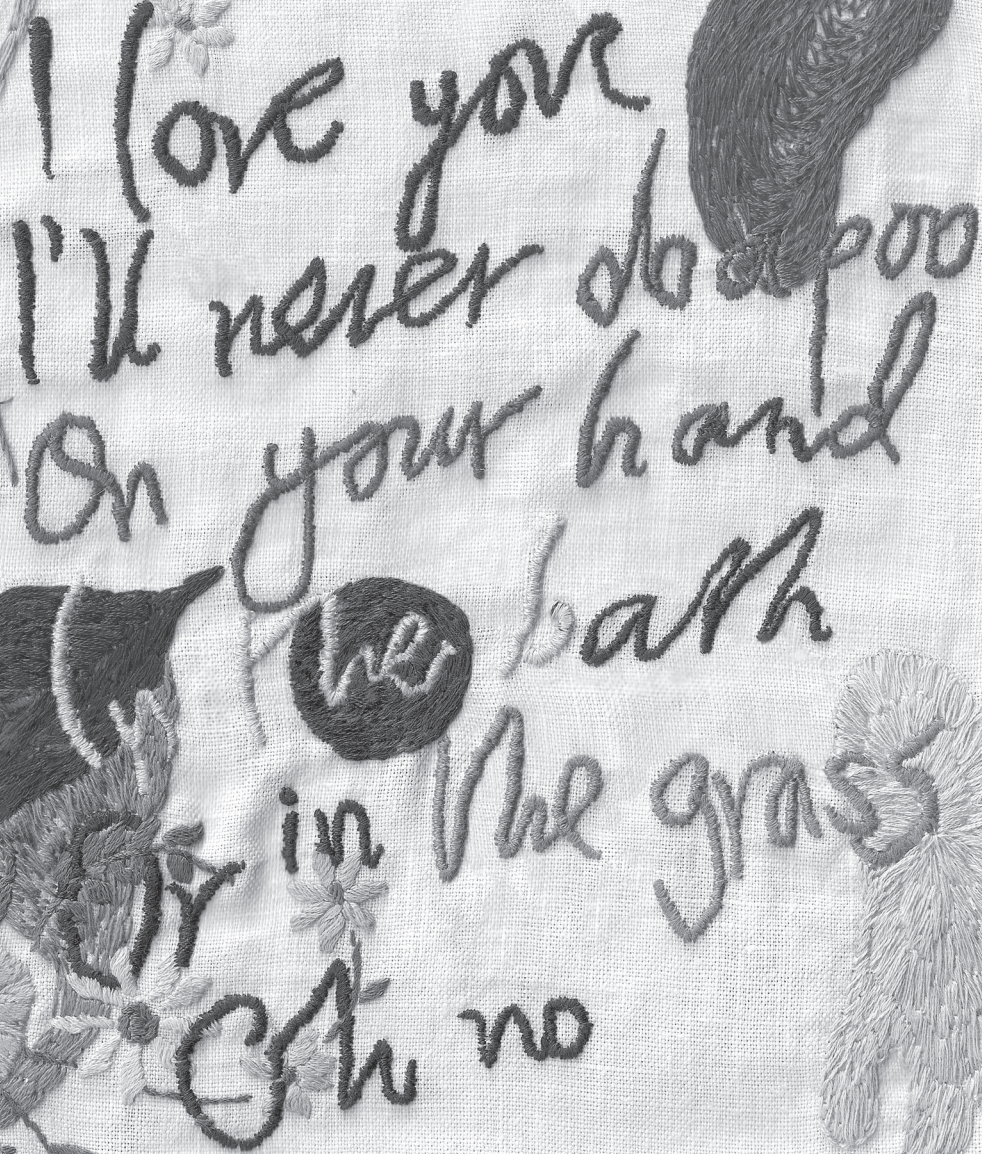 I love you
I'll never do a poo
On your hand
In the bath
Or in the grass
Oh no